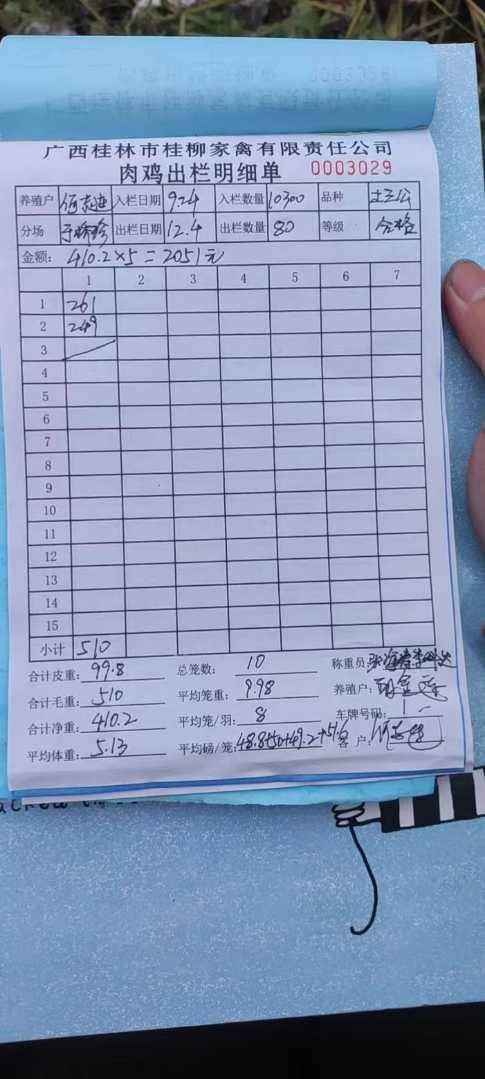 广西桂林市桂柳家禽有限责任公司
肉鸡出栏明细单 0003029
养殖户 入栏日期 9.24 入栏数量 10300 品种
分场 出栏日期 12.4 出栏数量 80 等级 合格
金额: 410.2×5=2051元
1 2 3 4 5 6 7
1 261
2 249
3
4
5
6
7
8
9
10
11
12
13
14
15
小计 510
合计皮重: 99.8 总笼数: 10 称重员:
合计毛重: 510 平均笼重: 9.98 养殖户:
合计净重: 410.2 平均笼/羽: 8 车牌号码:
平均体重: 5.13 平均磅/笼: 48.8+50+49.2+51.6 客户: